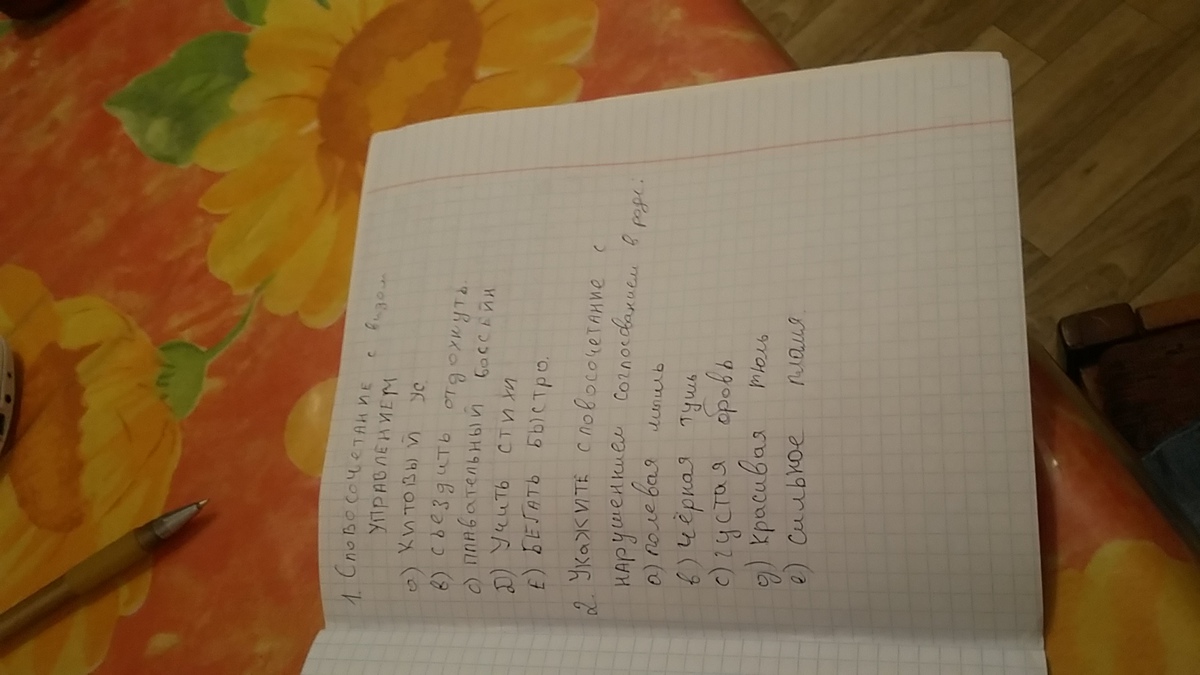 1. Словосочетание с видом
управлением
а) Китовый ус
в) съездить отдохнуть.
с) плавательный бассейн
Д) Учить стихи
Е) БЕГАТЬ БЫСТРО.
2. Укажите словосочетание с
нарушением согласованием в роде:
а) полевая мышь
в) чёрная тушь
с) густая бровь
д) красивая тюль
е) сильное пламя.